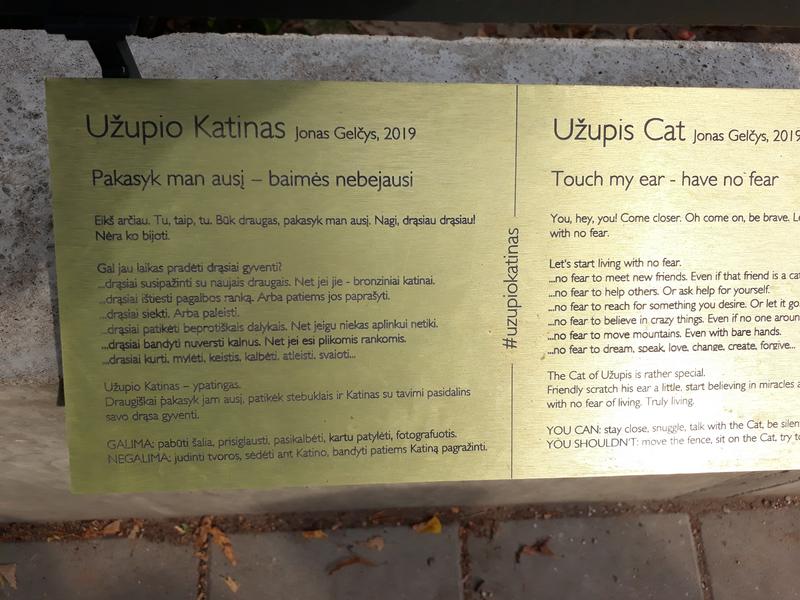 Užupio Katinas Jonas Gelčys, 2019
Pakasyk man ausį – baimės nebejausi
Eikš arčiau. Tu, taip, tu. Būk draugas, pakasyk man ausį. Nagi, drąsiau drąsiau!
Nėra ko bijoti.
Gal jau laikas pradėti drąsiai gyventi?
...drąsiai susipažinti su naujais draugais. Net jei jie - bronziniai katinai.
...drąsiai ištiesti pagalbos ranką. Arba patiems jos paprašyti.
...drąsiai siekti. Arba paleisti.
...drąsiai patikėti beprotiškais dalykais. Net jeigu niekas aplinkui netiki.
...drąsiai bandyti nuversti kalnus. Net jei esi plikomis rankomis.
...drasiai kurti, mylėti, keistis, kalbėti, atleisti, svaioti...
Užupio Katinas – ypatingas.
Draugiškai pakasyk jam ausį, patikėk stebuklais ir Katinas su tavimi pasidalins
savo drąsa gyventi.
GALIMA: pabūti šalia, prisiglausti, pasikalbėti, kartu patylėti, fotografuotis.
NEGALIMA: judinti tvoros, sėdėti ant Katino, bandyti patiems Katiną pagražinti.
#uzupiokatinas
Užupis Cat Jonas Gelčys, 2019
Touch my ear - have no fear
You, hey, you! Come closer. Oh come on, be brave.
with no fear.
Let's start living with no fear.
...no fear to meet new friends. Even if that friend is a cat
...no fear to help others. Or ask help for yourself.
...no fear to reach for something you desire. Or let it go
...no fear to believe in crazy things. Even if no one
...no fear to move mountains. Even with bare hands.
...no fear to dream, speak, love, change, create, forgive...
The Cat of Užupis is rather special.
Friendly scratch his ear a little, start believing in miracles
with no fear of living. Truly living.
YOU CAN: stay close, snuggle, talk with the Cat, be
YOU SHOULDN'T: move the fence, sit on the Cat, try